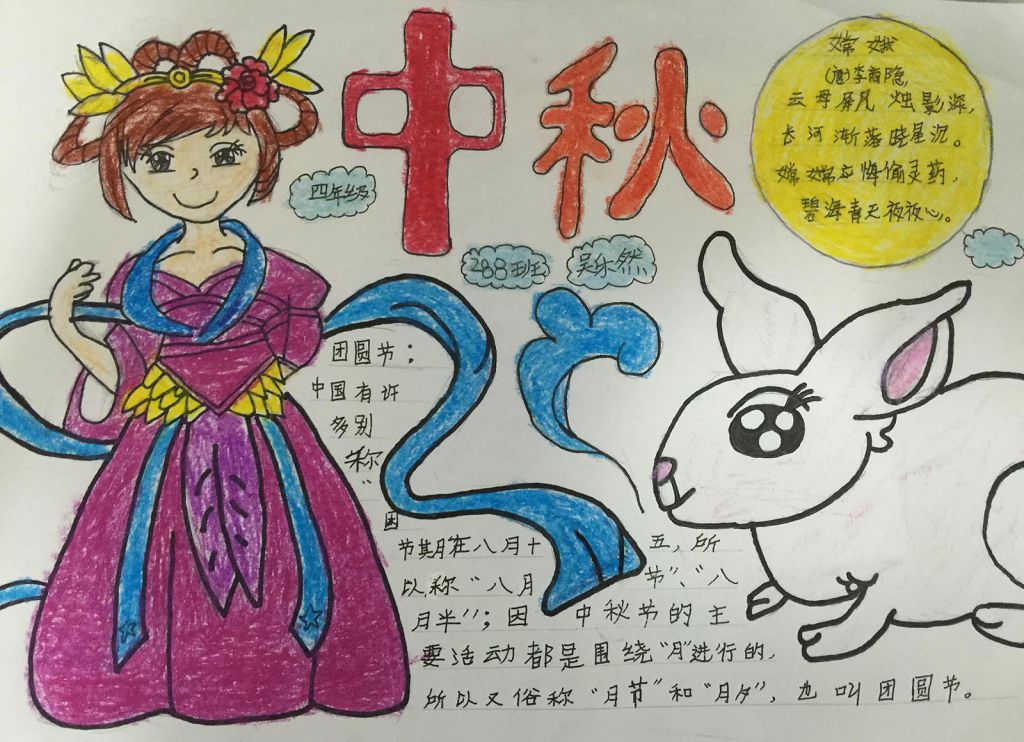 中秋
嫦娥
(唐)李商隐
云母屏风 烛影深,
长河渐落晓星沉。
嫦娥应悔偷灵药,
碧海青天夜夜心。
四年级
288班
吴乐然
团圆节;
中国有许
多别
称
"
因
节期在八月十五,所
以称"八月节"、"八
月半";因中秋节的主
要活动都是围绕"月"进行的,
所以又俗称"月节"和"月夕",也叫团圆节。